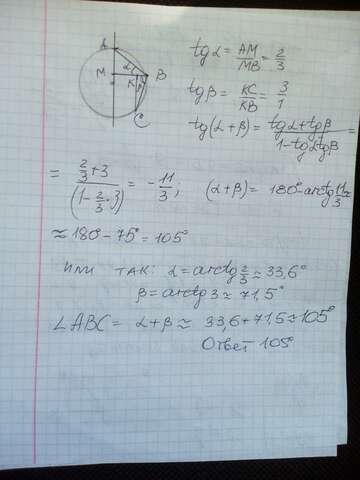 A
α
M
K
β
B
C
tg α = AM/MB = 2/3
tg β = KC/KB = 3/1
tg(α+β) = (tgα+tgβ)/(1-tgα tgβ) =
= (2/3+3)/(1-2/3·3) = -11/3; (α+β) = 180°-arctg 11/3 ≈
≈ 180°-75° = 105°
или так: α = arctg 2/3 ≈ 33,6°
β = arctg 3 ≈ 71,5°
∠ABC = α+β ≈ 33,6+71,5 ≈ 105°
Ответ 105°